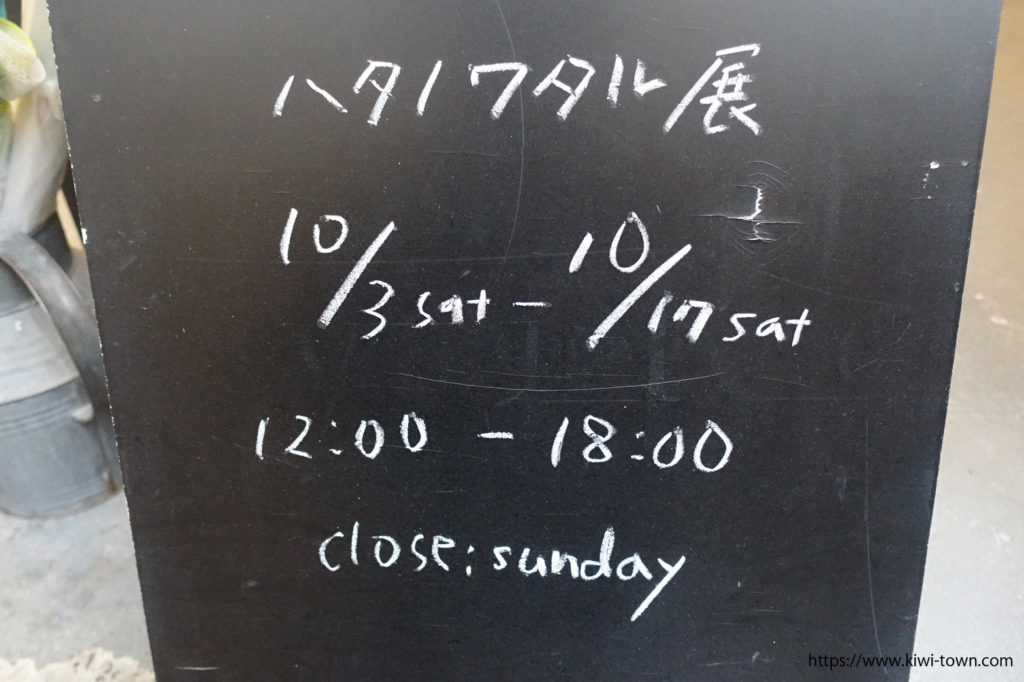 ハタノワタル展
10/3 sat - 10/17 sat
12:00 - 18:00
close: sunday
https://www.kiwi-town.com